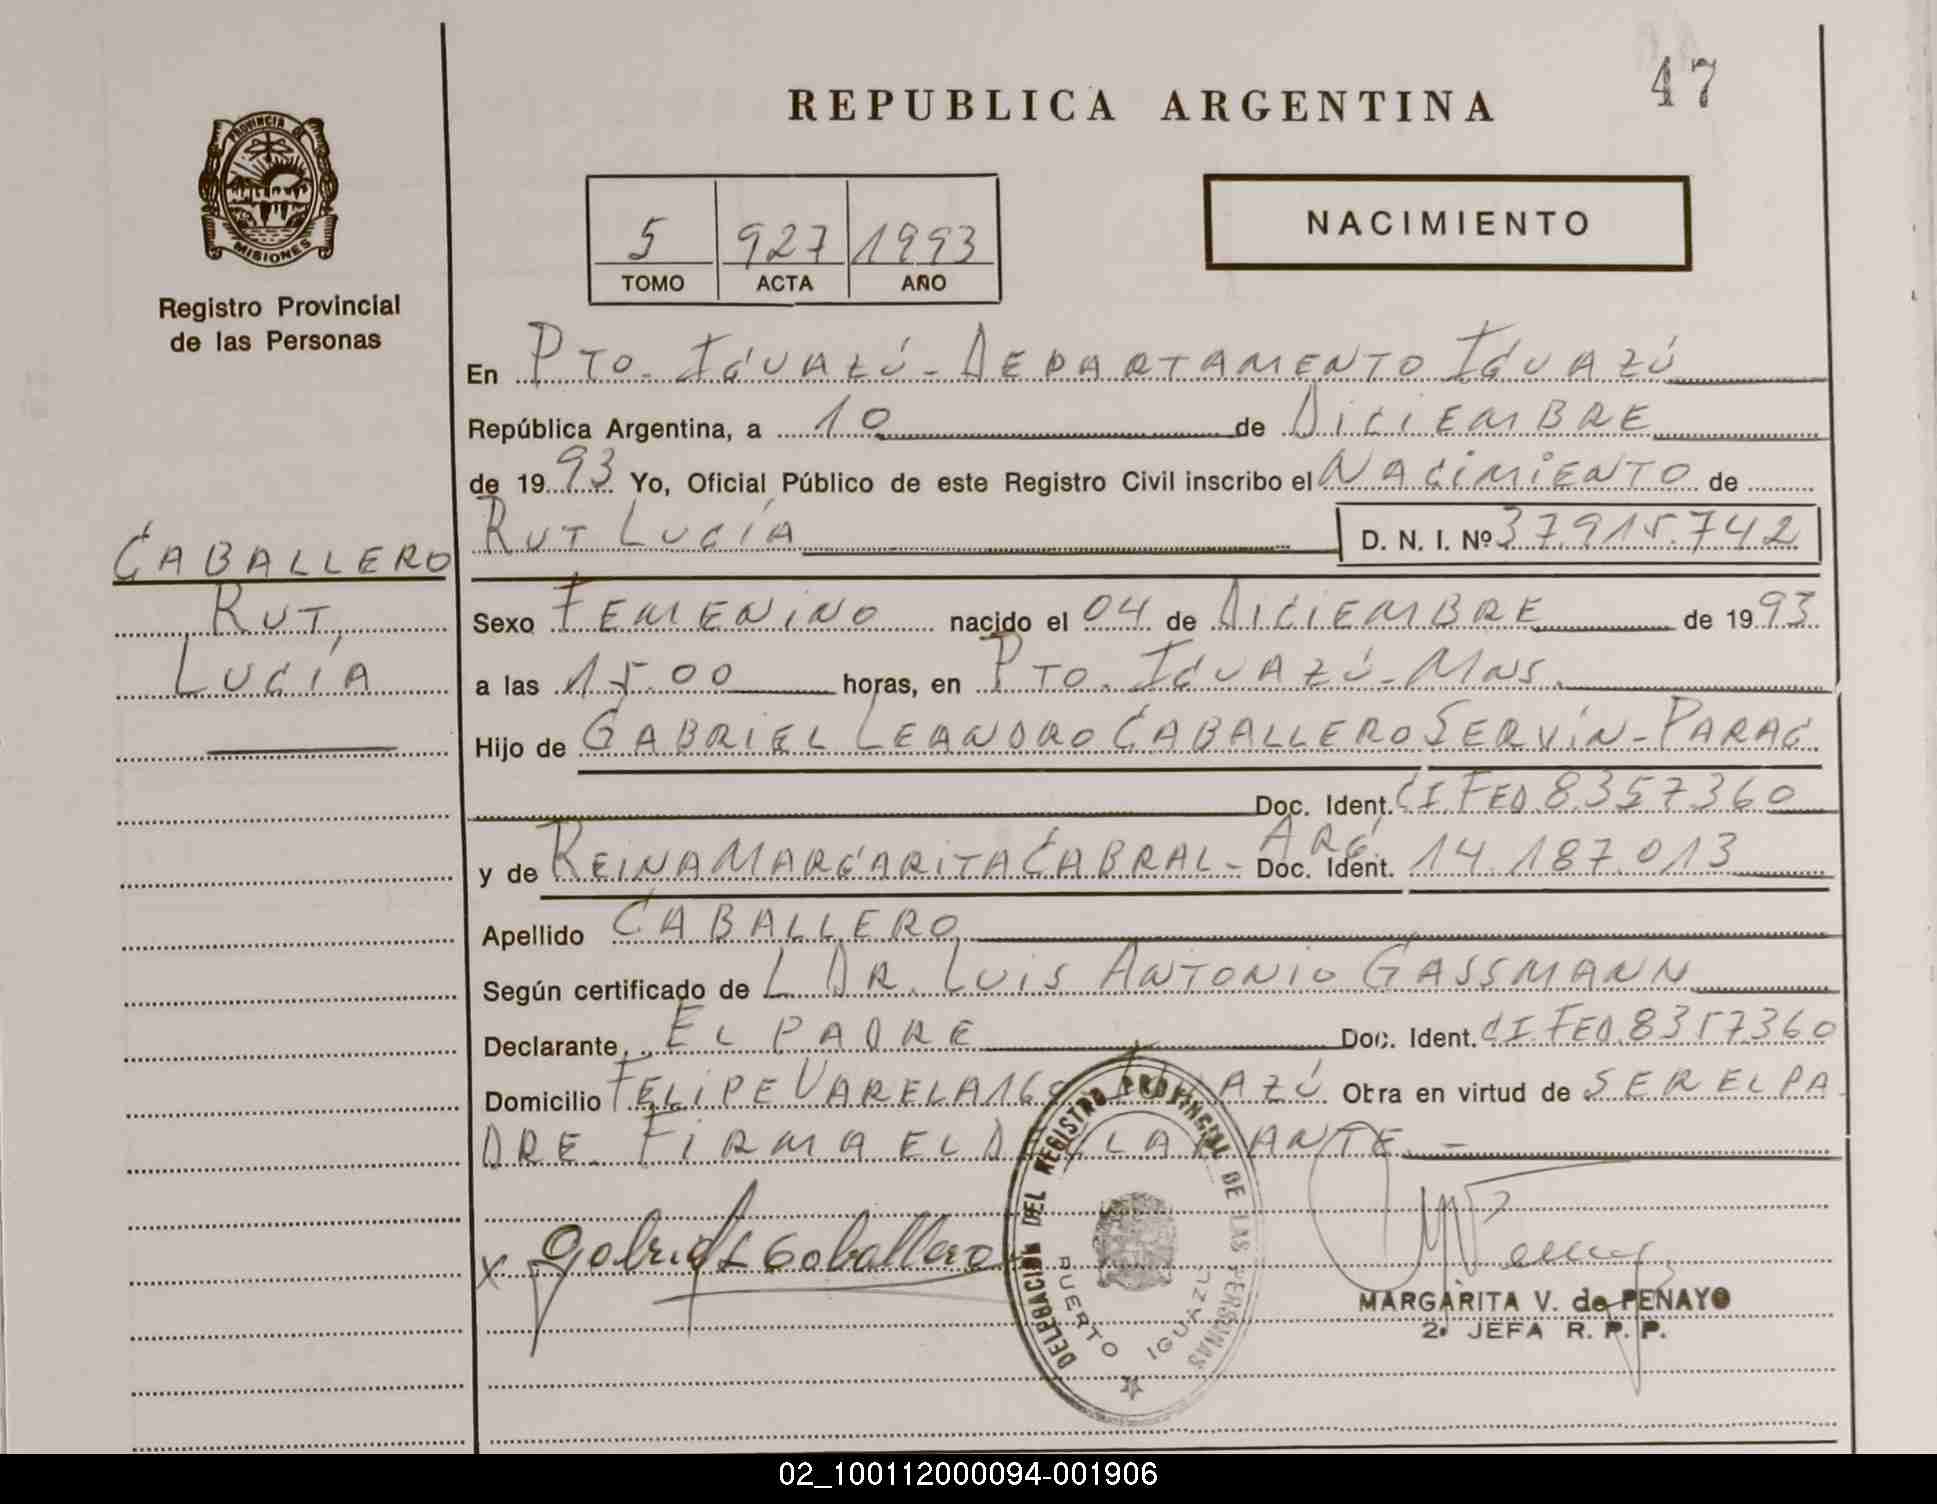 47
REPUBLICA ARGENTINA
PROVINCIA DE
MISIONES
Registro Provincial
de las Personas
5 927 1993
TOMO ACTA AÑO
NACIMIENTO
En PTO. IGUAZÚ - DEPARTAMENTO IGUAZÚ
República Argentina, a 10 de DICIEMBRE
de 1993 Yo, Oficial Público de este Registro Civil inscribo el NACIMIENTO de
RUT LUCÍA D. N. I. Nº 37.915.742
CABALLERO
RUT,
LUCÍA
Sexo FEMENINO nacido el 04 de DICIEMBRE de 1993
a las 15.00 horas, en PTO. IGUAZÚ - MNS.
Hijo de GABRIEL LEANDRO CABALLERO SERVÍN - PARAG.
Doc. Ident. CI FED 8357360
y de REINA MARGARITA CABRAL - ARG. Doc. Ident. 14.187.013
Apellido CABALLERO
Según certificado de L DR. LUIS ANTONIO GASSMANN
Declarante, EL PADRE Doc. Ident. CI. FED. 8357360
Domicilio FELIPE VARELA IGUAZÚ Otra en virtud de SER EL PA
DRE. FIRMA EL DECLARANTE. -
x Gabriel L Caballero
DELEGACION DEL REGISTRO PROVINCIAL DE LAS PERSONAS
PUERTO IGUAZU
MARGARITA V. de PENAYO
2º JEFA R. P. P.
02_100112000094-001906